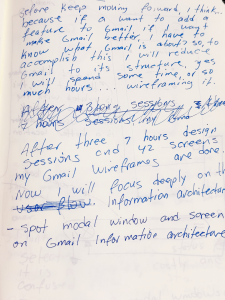 Before keep moving forward, I think...
because if a want to add a
feature to Gmail if I want
make Gmail better, I have to
know what Gmail is about? so, to
accomplish this I will reduce
Gmail to its structure, yes
I will spend some time, or so
much hours... wireframing it.
7 hours sessions my Gma
After three 7 hours design
sessions and 42 screens
my Gmail Wireframes are done.
Now I will focus deeply on th
user flow. Information architecture
- Spot modal window and screen
on Gmail Information architecture